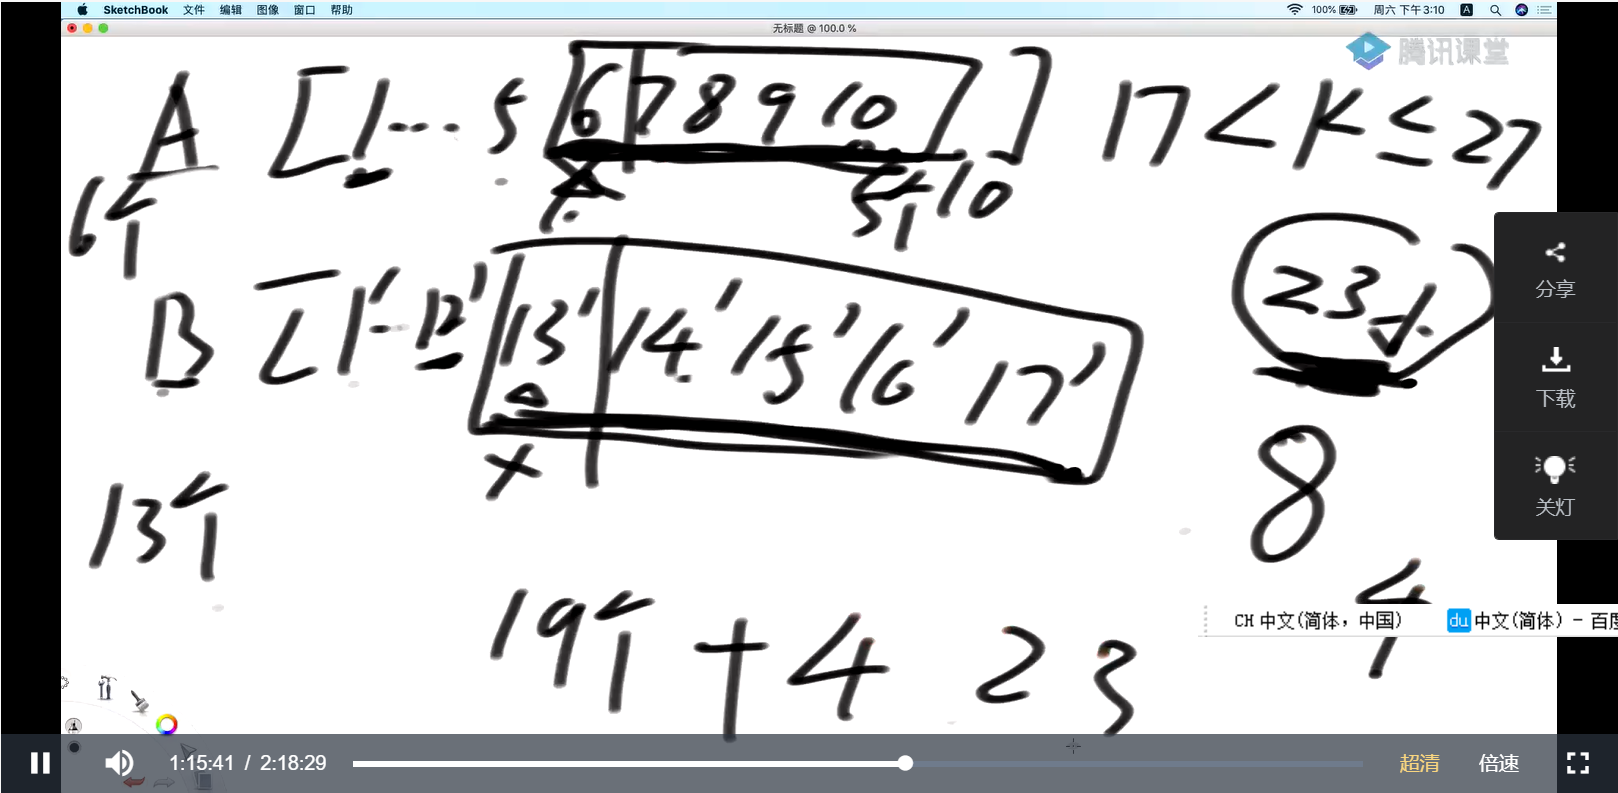 SketchBook 文件 编辑 图像 窗口 帮助 100% 周六 下午3:10 A
无标题 @ 100.0 %
腾讯课堂
A [1... 5 6 7 8 9 10 ] 17 < K ≤ 27
6个 5个 10
B [1' 12' 13' 14' 15' 16' 17' 23小
分享
下载
关灯
13个 8
19个 + 4 23
CH 中文(简体，中国) du 中文(简体) - 百度
1:15:41 / 2:18:29 超清 倍速